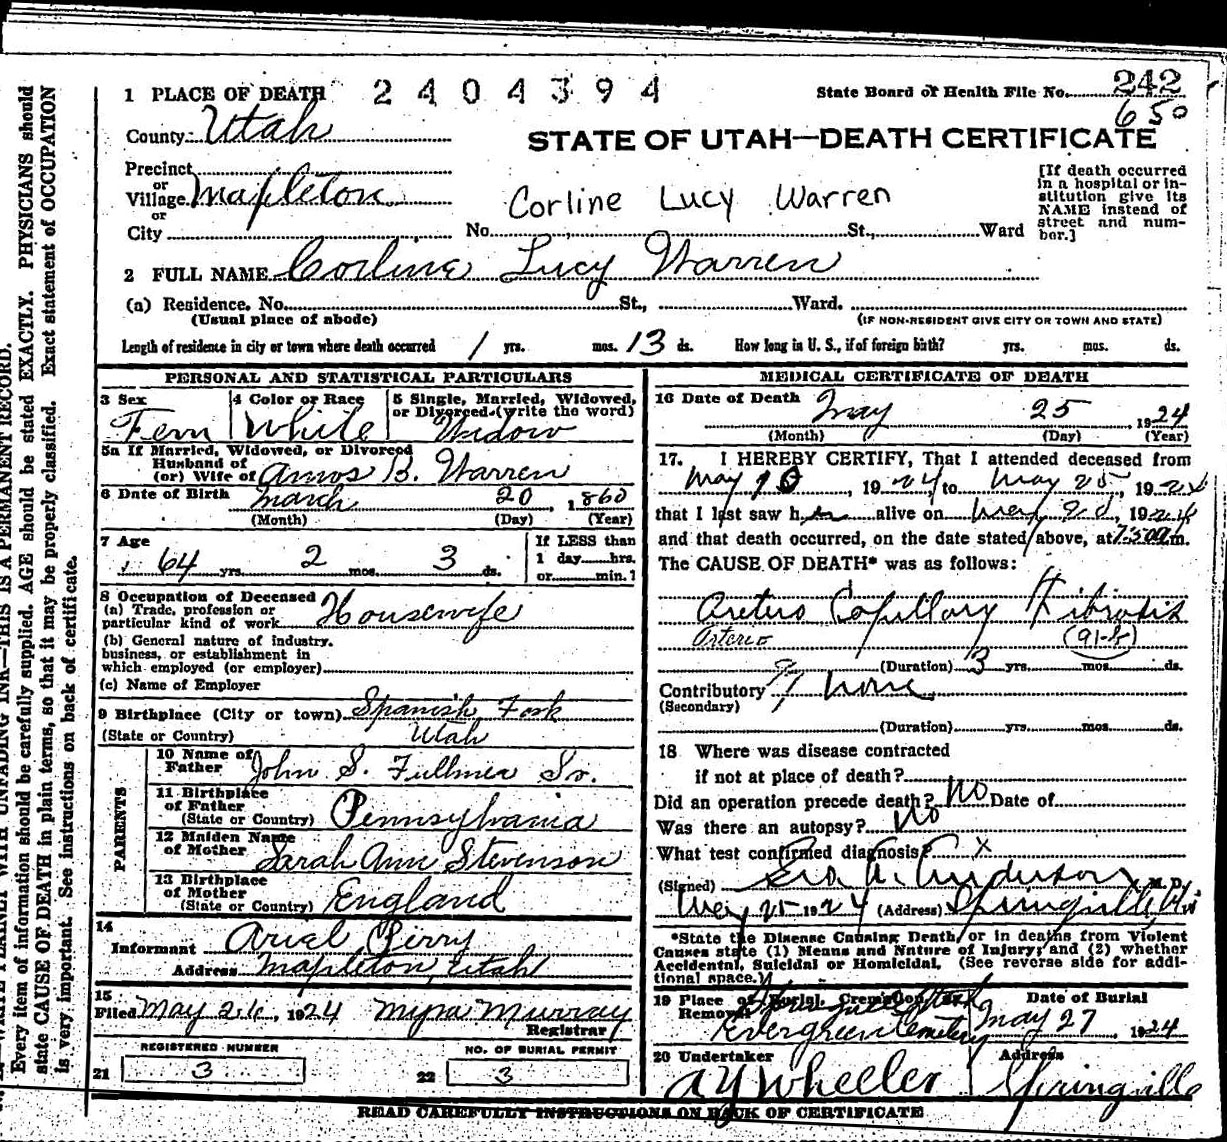 1 PLACE OF DEATH 2404394 State Board of Health File No. 242
650
County Utah STATE OF UTAH—DEATH CERTIFICATE
Precinct
or
Village Mapleton Corline Lucy Warren
or
City No. St., Ward
[If death occurred
in a hospital or in-
stitution give its
NAME instead of
street and num-
ber.]
2 FULL NAME Corline Lucy Warren
(a) Residence. No. St., Ward.
(Usual place of abode) (IF NON-RESIDENT GIVE CITY OR TOWN AND STATE)
Length of residence in city or town where death occurred 1 yrs. mos. 13 ds. How long in U. S., if of foreign birth? yrs. mos. ds.
PERSONAL AND STATISTICAL PARTICULARS
3 Sex 4 Color or Race 5 Single, Married, Widowed,
or Divorced (write the word)
Fem White Widow
5a If Married, Widowed, or Divorced
Husband of
(or) Wife of Amos B. Warren
6 Date of Birth March 20, 1860
(Month) (Day) (Year)
7 Age If LESS than
64 yrs. 2 mos. 3 ds. 1 day hrs.
or min. ?
8 Occupation of Deceased
(a) Trade, profession or
particular kind of work Housewife
(b) General nature of industry.
business, or establishment in
which employed (or employer)
(c) Name of Employer
9 Birthplace (City or town) Spanish Fork
(State or Country) Utah
PARENTS
10 Name of
Father John S. Fullmer Sr.
11 Birthplace
of Father
(State or Country) Pennsylvania
12 Maiden Name
of Mother Sarah Ann Stevenson
13 Birthplace
of Mother
(State or Country) England
14
Informant Ariel Perry
Address Mapleton, Utah
15
Filed May 26, 1924 Myra Murray
Registrar
REGISTERED NUMBER NO. OF BURIAL PERMIT
21 3 22 3
MEDICAL CERTIFICATE OF DEATH
16 Date of Death May 25, 1924
(Month) (Day) (Year)
17. I HEREBY CERTIFY, That I attended deceased from
May 10, 1924 to May 25, 1924
that I last saw her alive on May 1924
and that death occurred, on the date stated above, at 7:30 a m.
The CAUSE OF DEATH* was as follows:
Capillary Fibrosis
Arterio (91-b)
(Duration) 3 yrs. mos. ds.
Contributory none
(Secondary)
(Duration) yrs. mos. ds.
18 Where was disease contracted
if not at place of death?
Did an operation precede death? No Date of
Was there an autopsy? No
What test confirmed diagnosis? x
(Signed) Anderson, M. D.
May 25 1924 (Address) Springville
*State the Disease Causing Death, or in deaths from Violent
Causes state (1) Means and Nature of Injury; and (2) whether
Accidental, Suicidal or Homicidal. (See reverse side for addi-
tional space.)
19 Place of Burial, Cremation or Removal Date of Burial
Evergreen Cemetery May 27 1924
20 Undertaker Address
A Y Wheeler Springville
READ CAREFULLY INSTRUCTIONS ON BACK OF CERTIFICATE
WRITE PLAINLY WITH UNFADING INK—THIS IS A PERMANENT RECORD.
Every item of information should be carefully supplied. AGE should be stated EXACTLY. PHYSICIANS should
state CAUSE OF DEATH in plain terms, so that it may be properly classified. Exact statement of OCCUPATION
is very important. See instructions on back of certificate.